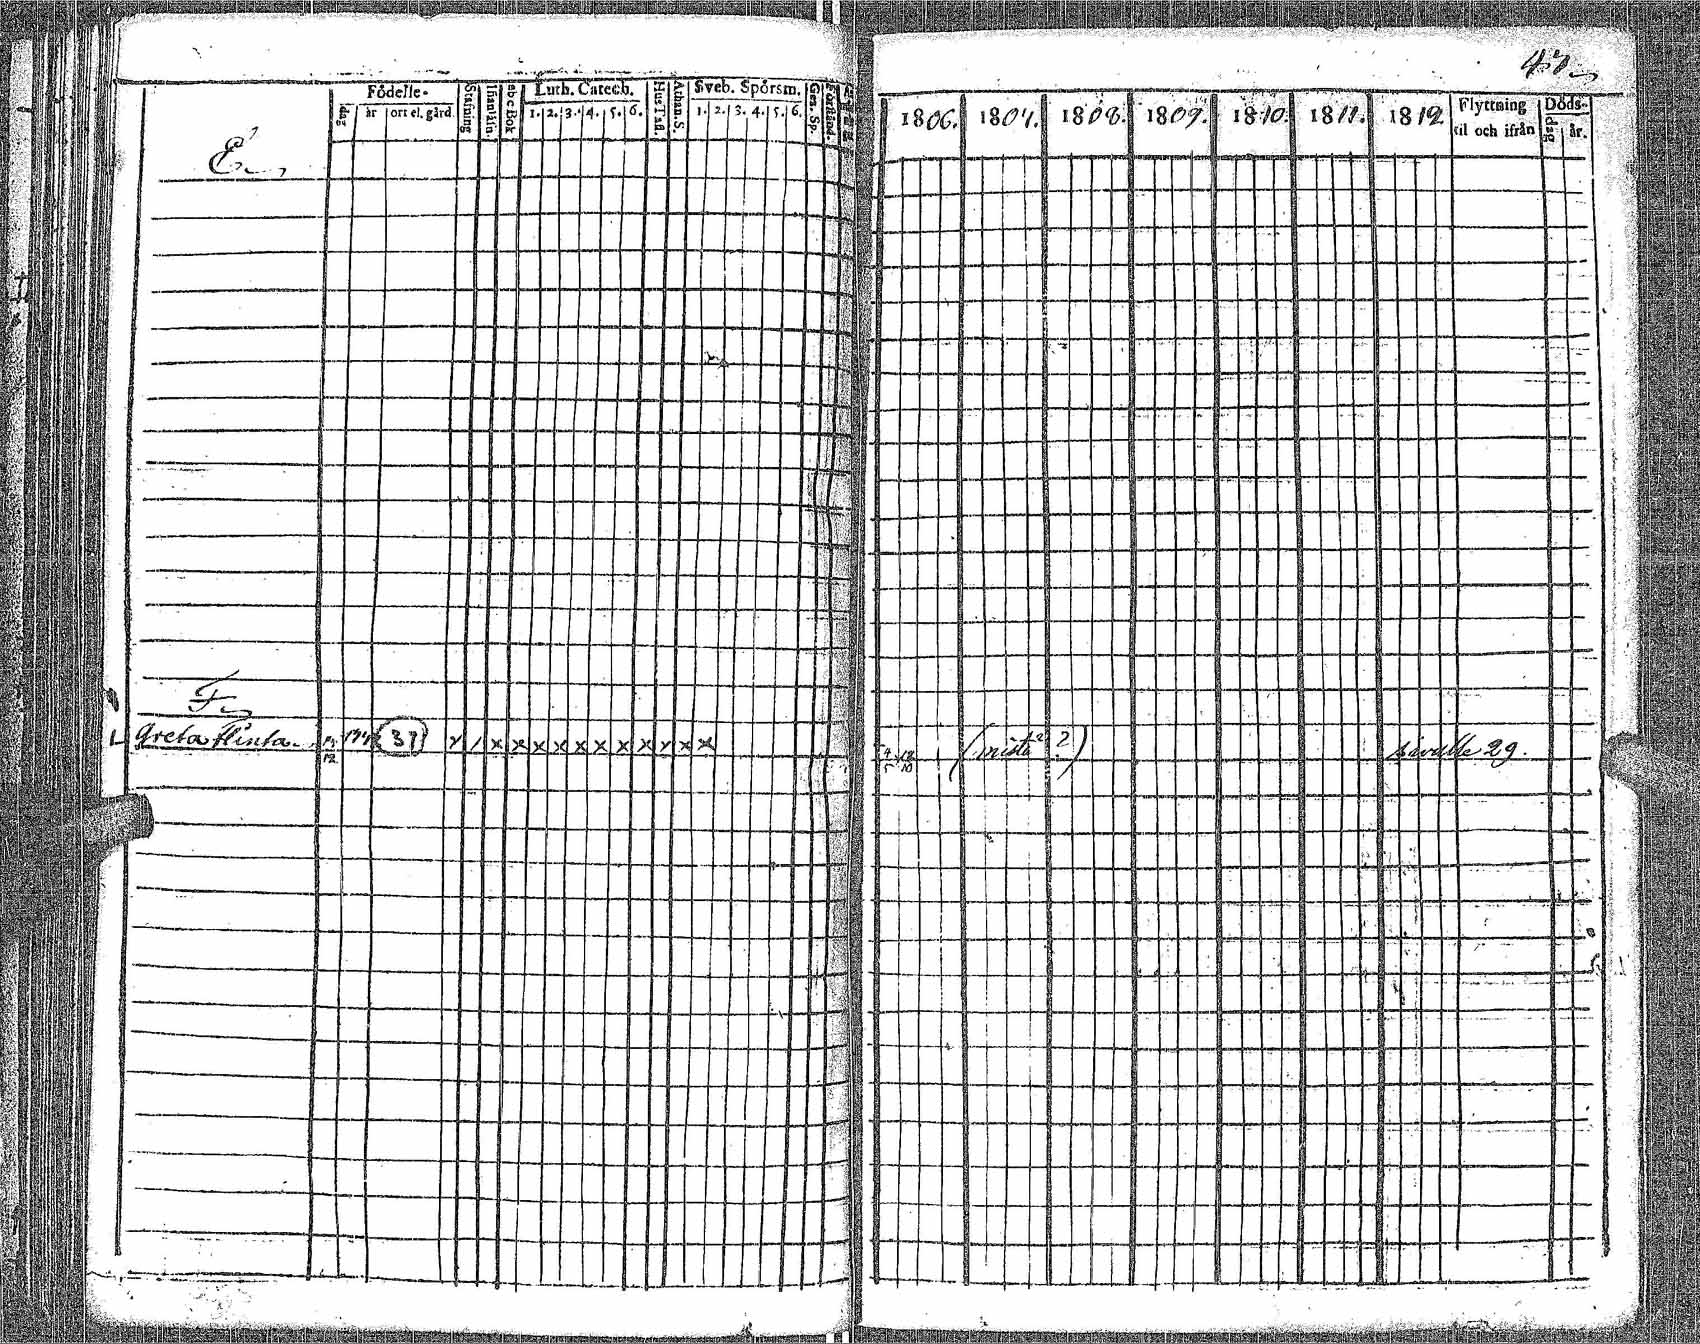 Födelse-
dag år ort el. gård
Stafning
Innanläsn.
abc Bok
Luth. Catech.
1. 2. 3. 4. 5. 6.
Hus Tafl.
Athan. S.
Sveb. Spörsm.
1. 2. 3. 4. 5. 6.
Gen. Sp.
Förstånd.
E
F
Greta Flinta 37 x / x x x x x x x x x x x
1806. 1807. 1808. 1809. 1810. 1811. 1812.
Flyttning
til och ifrån
Döds-
dag år.
(mistä ?) sivulle 29.